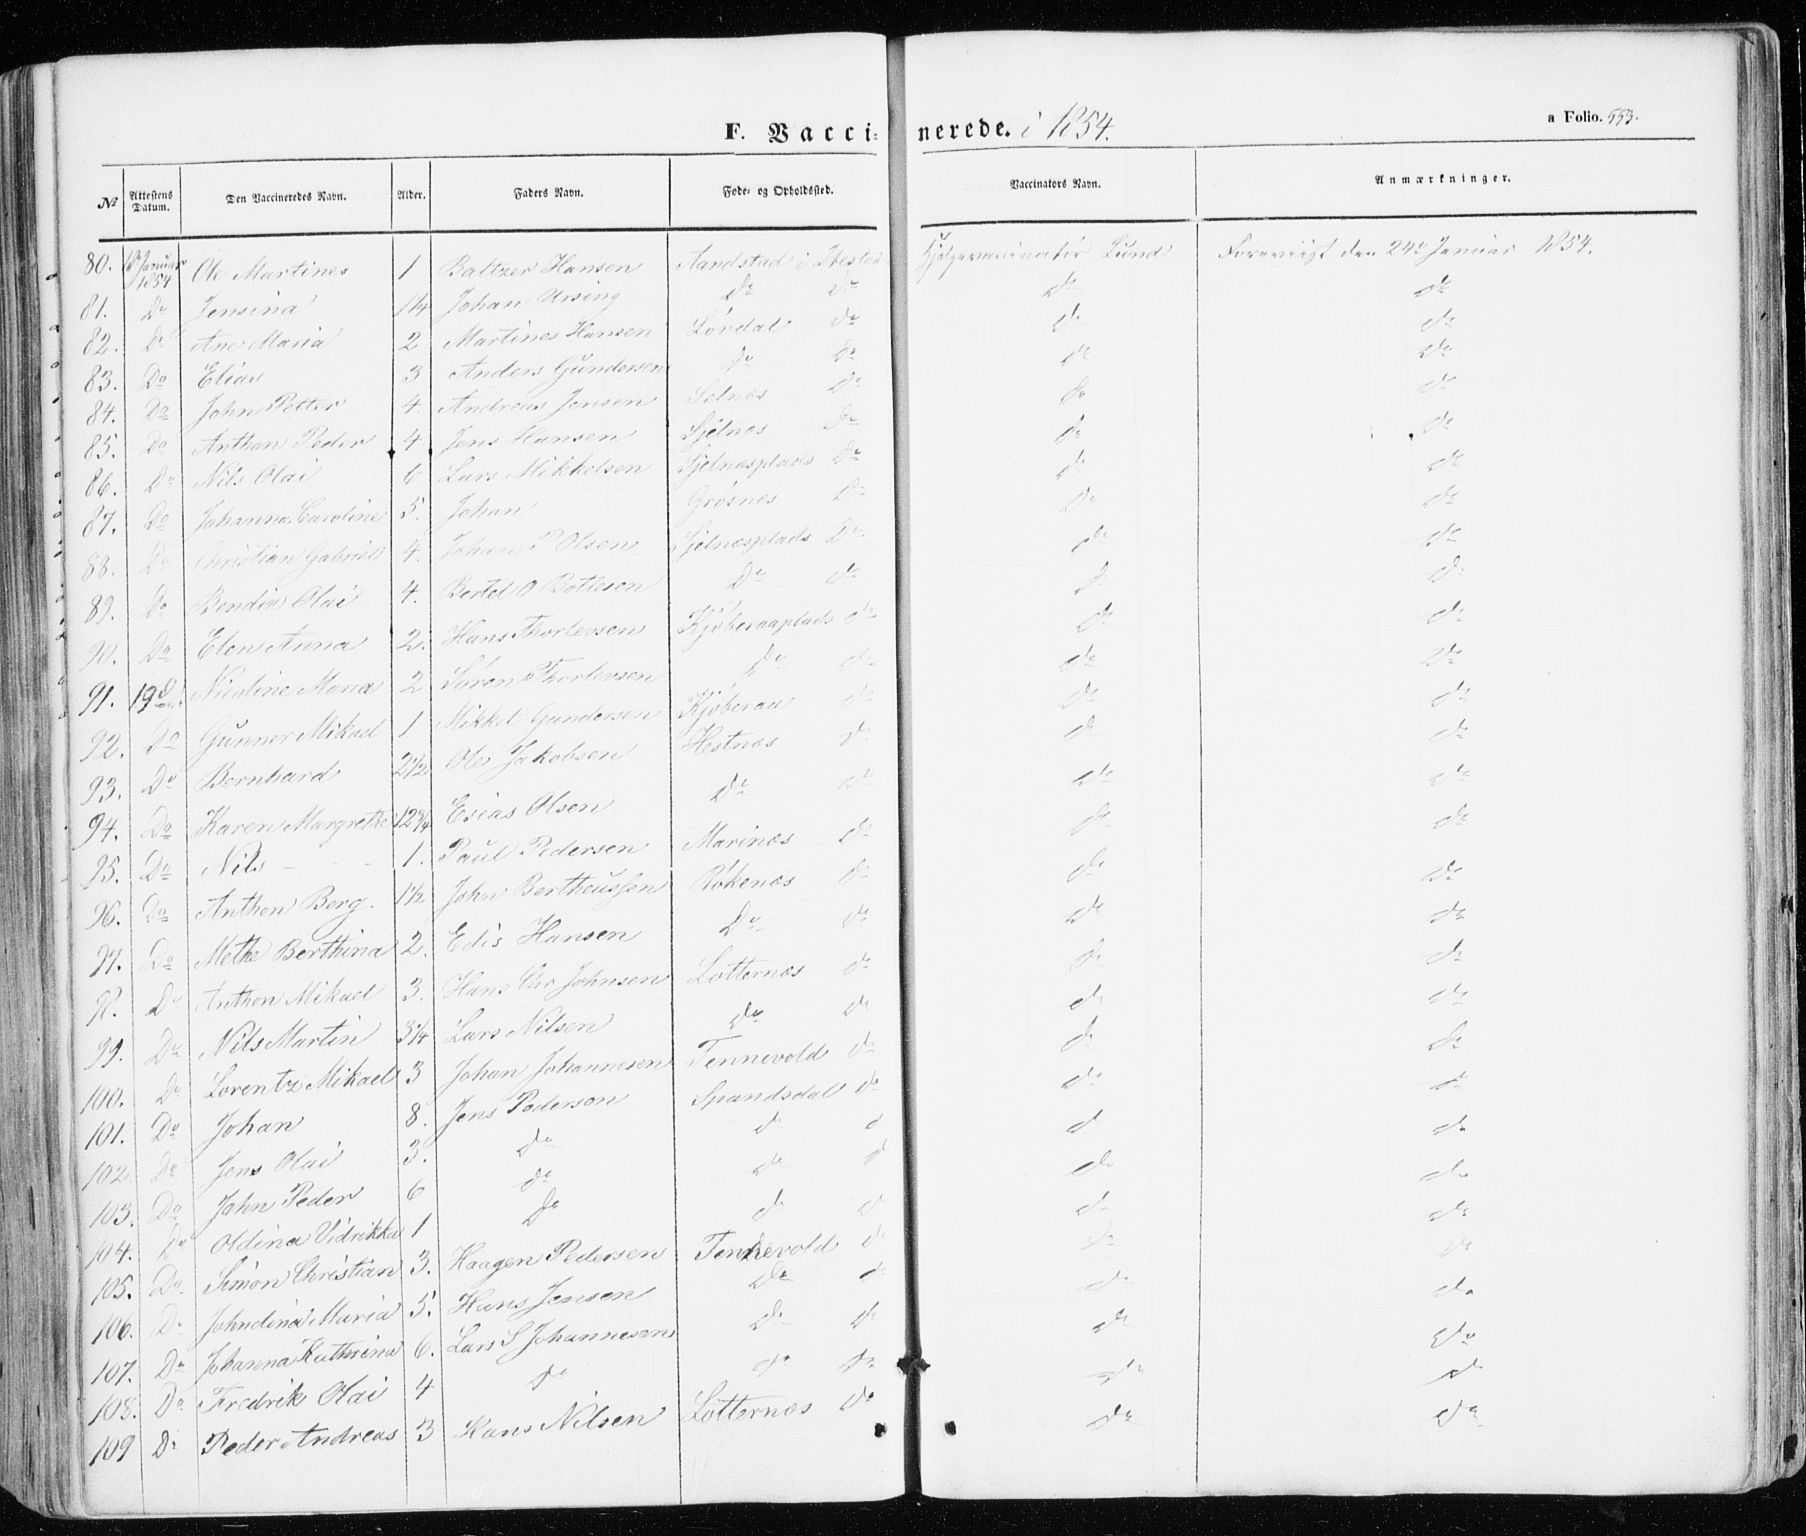 F. Vacci- nerede. i 1854.
a Folio. 553.
No Attestens Datum. Den Vaccineredes Navn. Alder. Faders Navn. Føde- og Opholdssted. Vaccinators Navn. Anmærkninger.
80. Januar 1854 Ole Martines 1 Baltzer Hansen Aandstad i Ibestad Hjelpevaccinatør Lund Foreviist den 24de Januar 1854.
81. Do Jensina 1¼ Johan Ursing Do Do do do
82. Do Ane Maria 2 Martines Hansen Lørdal do do do
83. Do Elias 3 Anders Gundersen Do do do do
84. Do John Petter 4. Andreas Jensen Selnes do do do
85. Do Anthon Peder 4 Jens Hansen Sjelnes do do do
86. Do Nils Olai 6 Lars Mikkelsen Sjelnesplads do do do
87. Do Johanna Caroline 5. Johan Grøsnes do do do
88. Do Christian Gabriel 4. Johan P Olsen Sjelnesplads do do do
89. Do Bendix Olai 4. Bertel O Bottesen Do do do do
90. Do Elen Anna 2. Hans Thorlevsen Kjøberaaplads do do do
91. 19de Nicoline Maria 2 Søren Thorlevsen Do do do do
92. Do Gunner Mikael 1 Mikkel Gundersen Kjøberaa do do do
93. Do Bernhard 2½ Ole Jakobsen Hestnes do do do
94. Do Karen Margrethe 12¾ Esias Olsen Do do do do
95. Do Nils 1. Paul Pedersen Marines do do do
96. Do Anthon Berg 1½ John Bertheussen Røkenes do do do
97. Do Methe Berthina 2. Edis Hansen Do do do do
98. Do Anthon Mikael 3. Hans Chr Johnsen Lotternes do do do
99. Do Nils Martin 3¼ Lars Nilsen Do do do do
100. Do Lorentz Mikael 3 Johan Johannesen Tennevold do do do
101. Do Johan 8. Jens Pedersen Spandsdal do do do
102. Do Jens Olai 3. Do do do do do
103. Do John Peder 6 do do do do do
104. Do Oldina Vidrikka 1 Do do do do do
105. Do Simon Christian 3. Haagen Pedersen Tennevold do do do
106. Do Johndina Maria 5. Hans Jensen Do do do do
107. Do Johanna Kathrina 6. Lars S Johannesen do do do do
108. Do Fredrik Olai 4 Do do do do do
109 Do Peder Andreas 3 Hans Nilsen Lotternes do do do